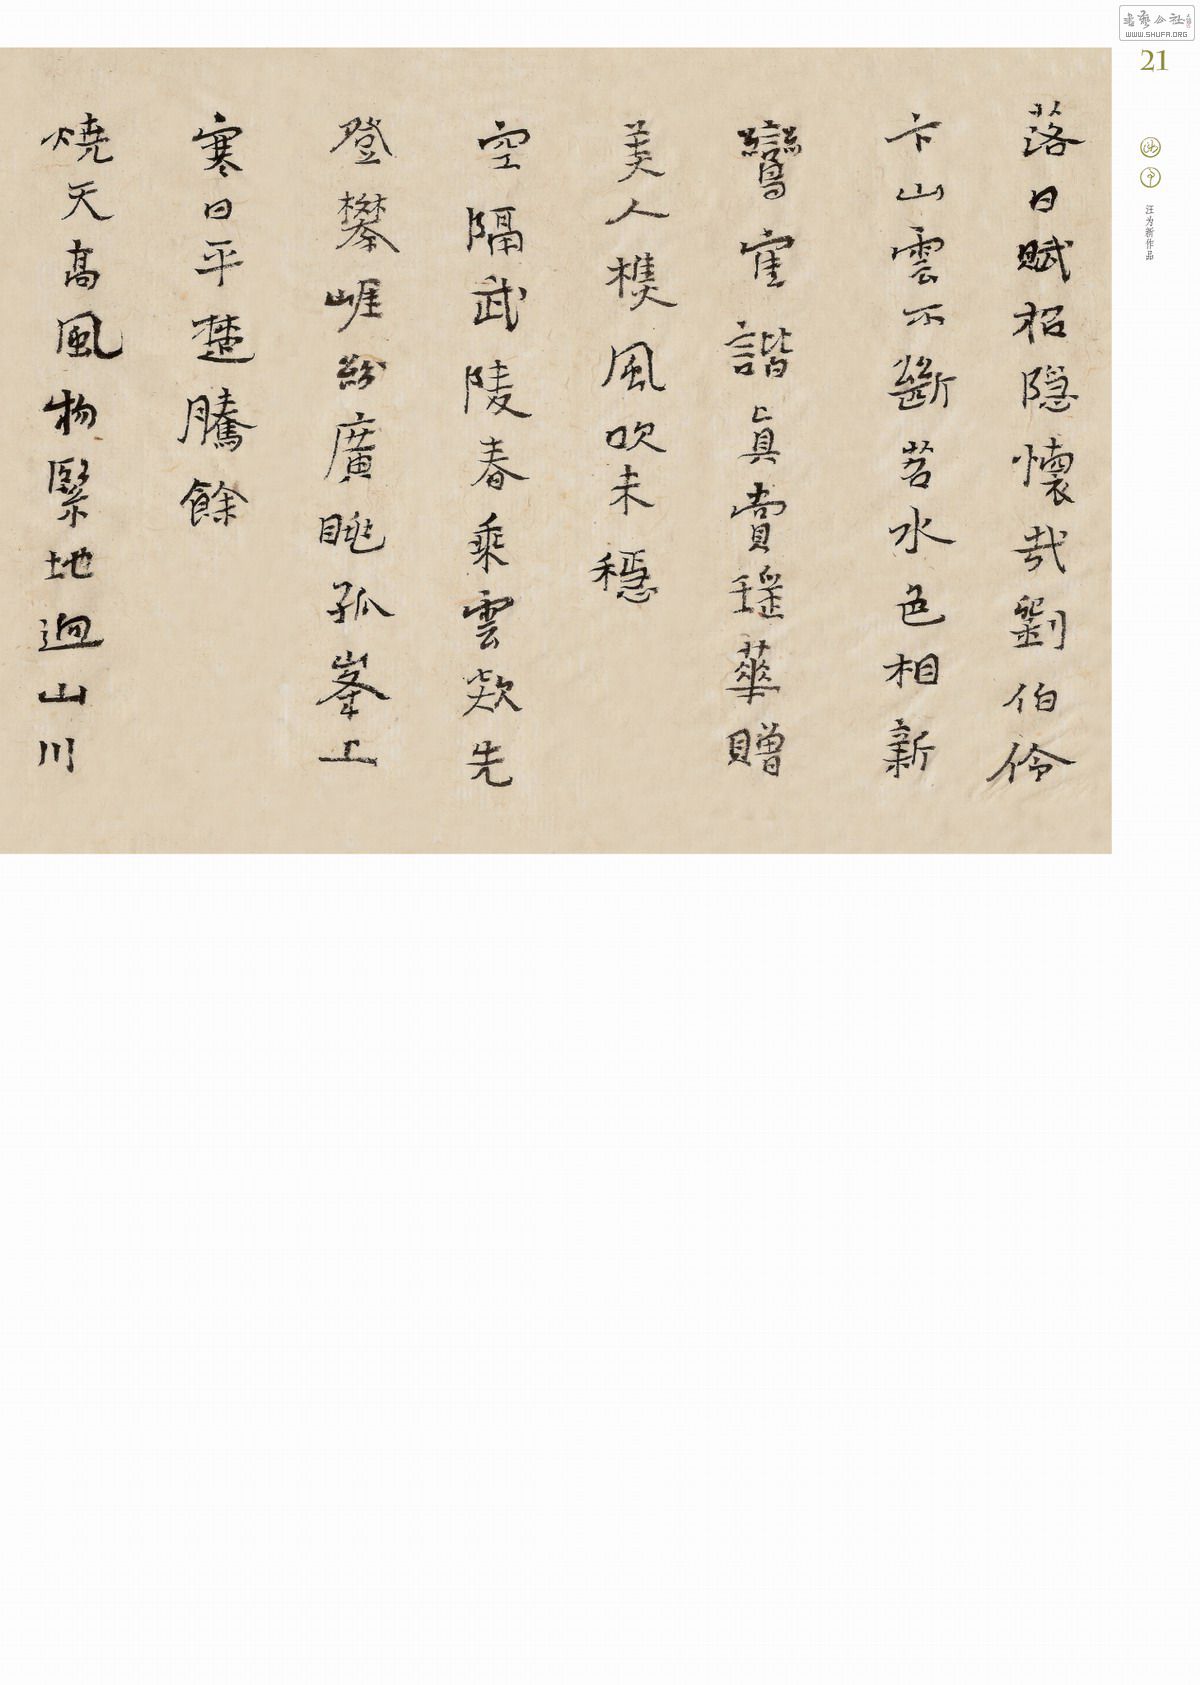 落日賦招隱懷哉劉伯伶
卞山雲不斷苕水色相新
鸞隺諧真賞瑤華贈
美人樵風吹未穩
空隔武陵春乘雲欻先
登攀崕紛廣眺孤峯上
寒日平楚騰餘
燒天高風物緊地迥山川
21
汪为新作品
书艺公社
WWW.SHUFA.ORG